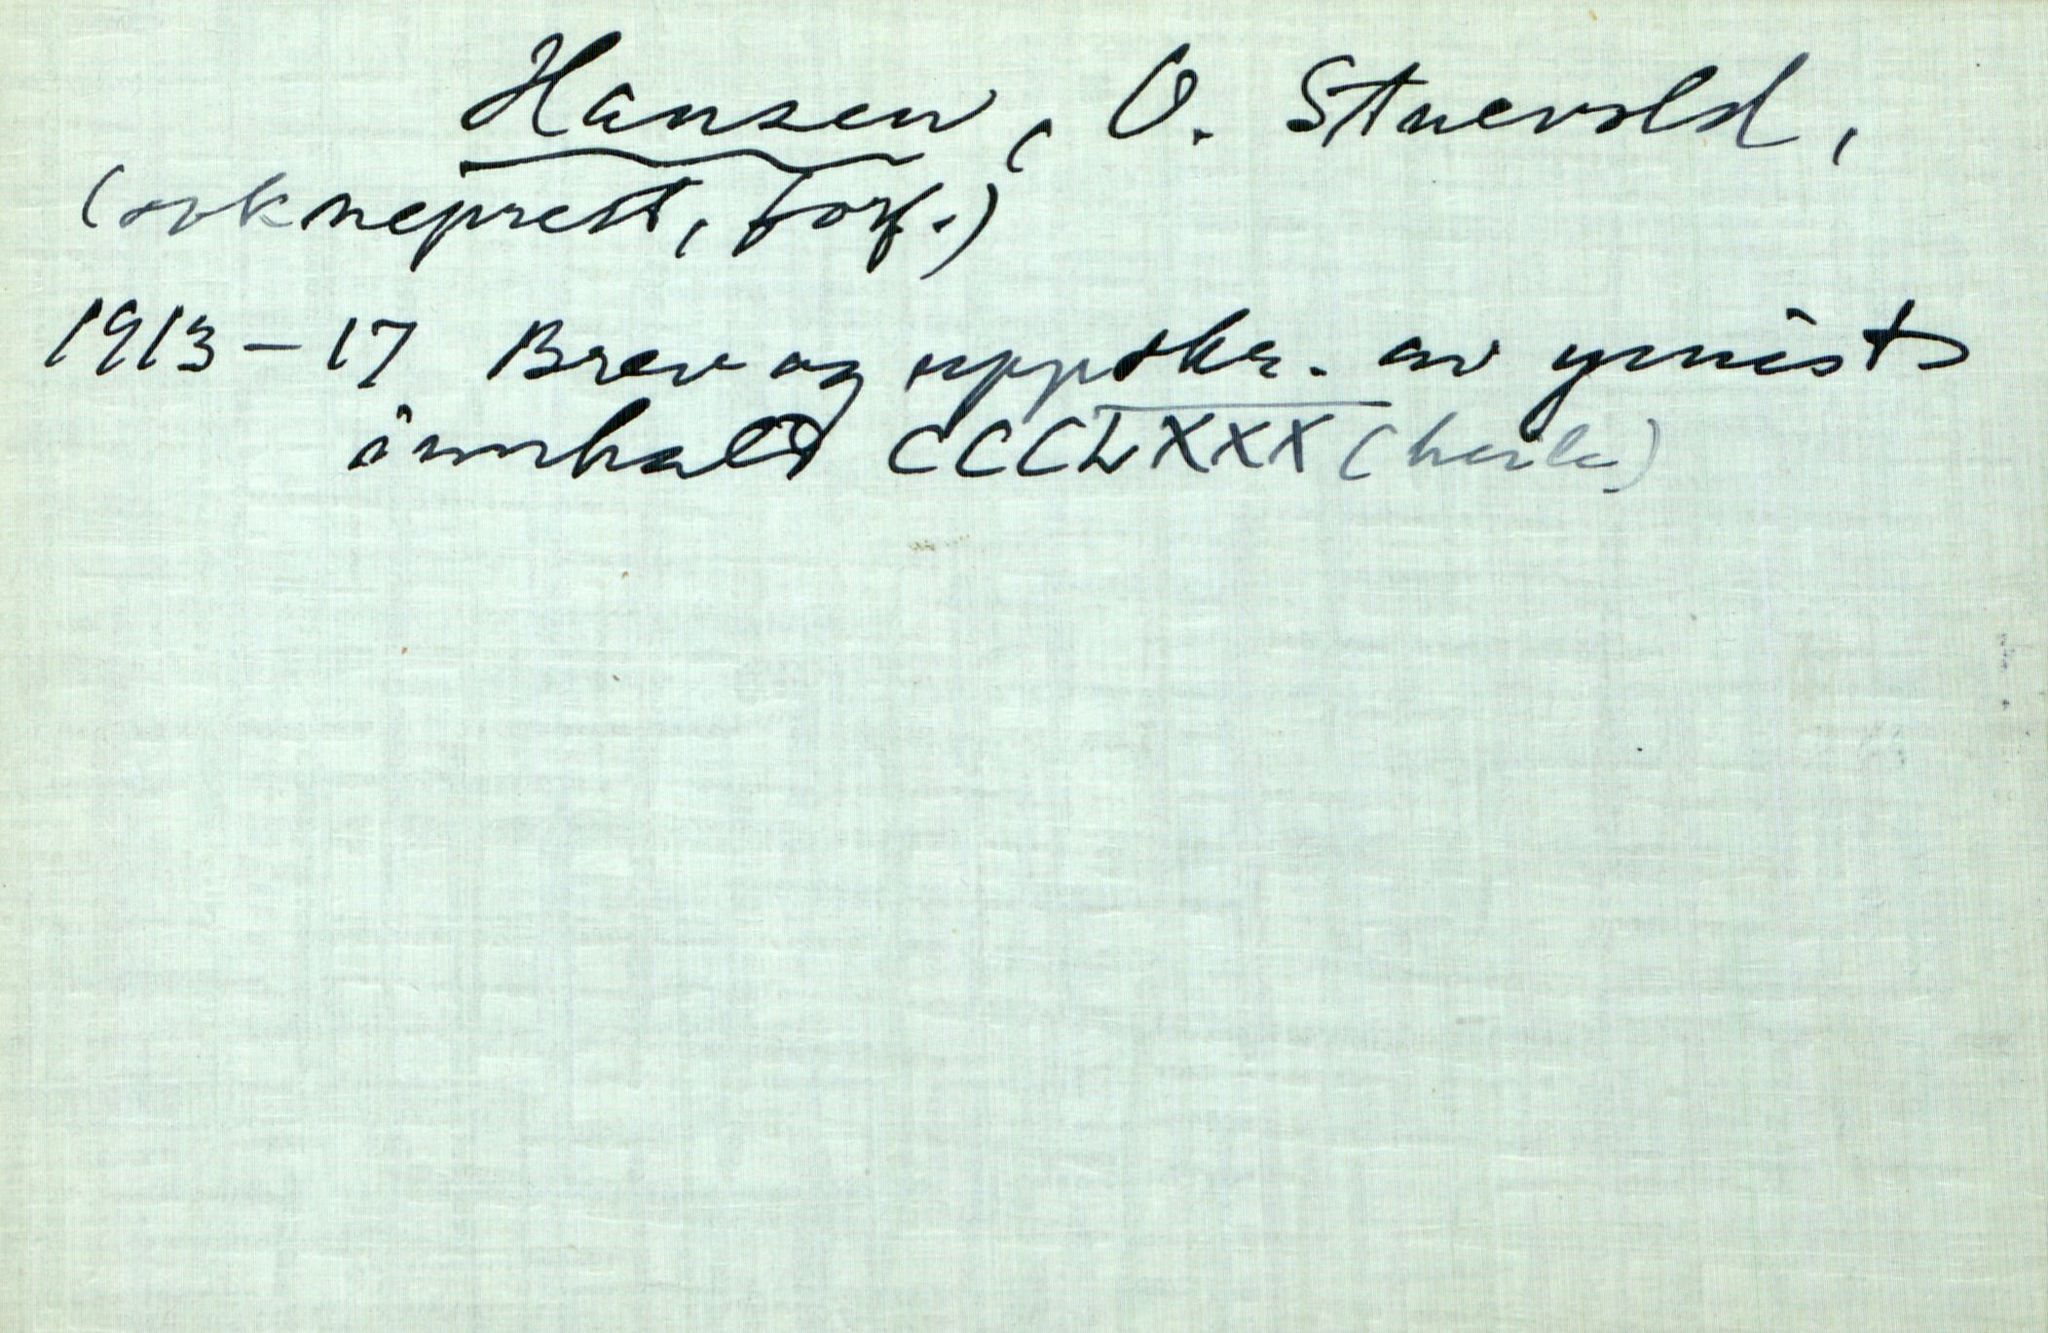 Hansen, O. Stuevold,
(sokneprest, forf.)
1913-17 Brev og uppskr. av ymist
innhald CCCLXXX (heile)